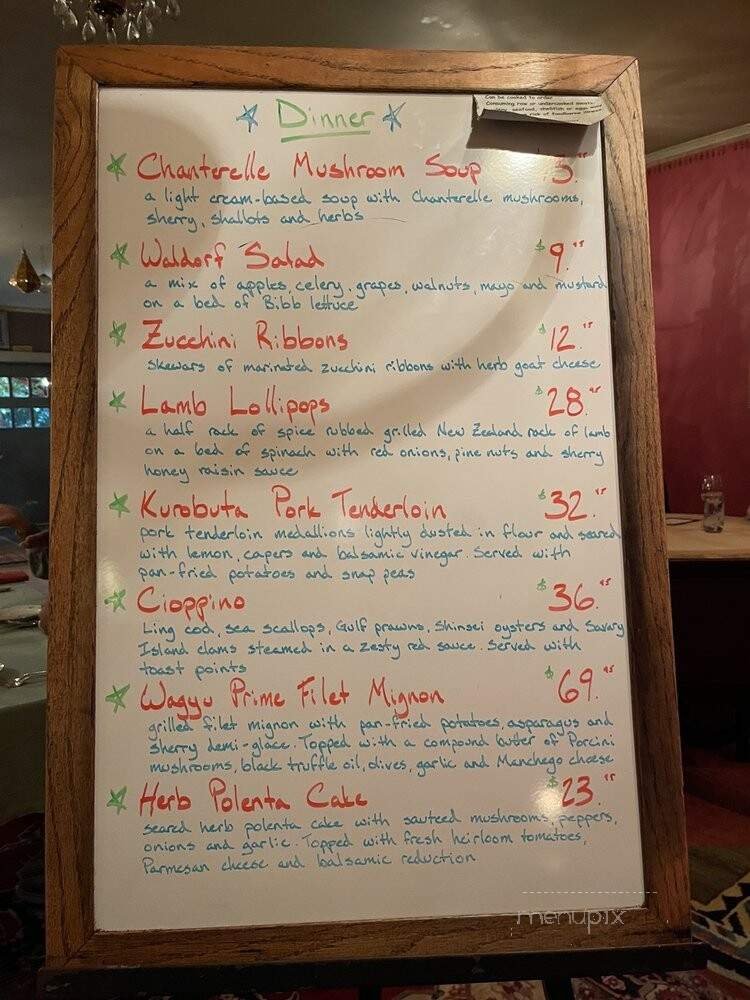 Can be cooked to order
Consuming raw or undercooked meats,
seafood, shellfish or eggs
risk of foodborne
Dinner
Chanterelle Mushroom Soup 5.
a light cream-based soup with Chanterelle mushrooms,
sherry, shallots and herbs
Waldorf Salad $9.95
a mix of apples, celery, grapes, walnuts, mayo and mustard
on a bed of Bibb lettuce
Zucchini Ribbons $12.95
skewars of marinated zucchini ribbons with herb goat cheese
Lamb Lollipops $28.95
a half rack of spice rubbed grilled New Zealand rack of lamb
on a bed of spinach with red onions, pine nuts and sherry
honey raisin sauce
Kurobuta Pork Tenderloin $32.95
pork tenderloin medallions lightly dusted in flour and seared
with lemon, capers and balsamic vinegar. Served with
pan-fried potatoes and snap peas
Cioppino $36.95
Ling cod, sea scallops, Gulf prawns, Shinsei oysters and Savary
Island clams steamed in a zesty red sauce. Served with
toast points
Wagyu Prime Filet Mignon $69.95
grilled filet mignon with pan-fried potatoes, asparagus and
sherry demi-glace. Topped with a compound butter of Porcini
mushrooms, black truffle oil, olives, garlic and Manchego cheese
Herb Polenta Cake $23.95
seared herb polenta cake with sauteed mushrooms, peppers,
onions and garlic. Topped with fresh heirloom tomatoes,
Parmesan cheese and balsamic reduction
menupix